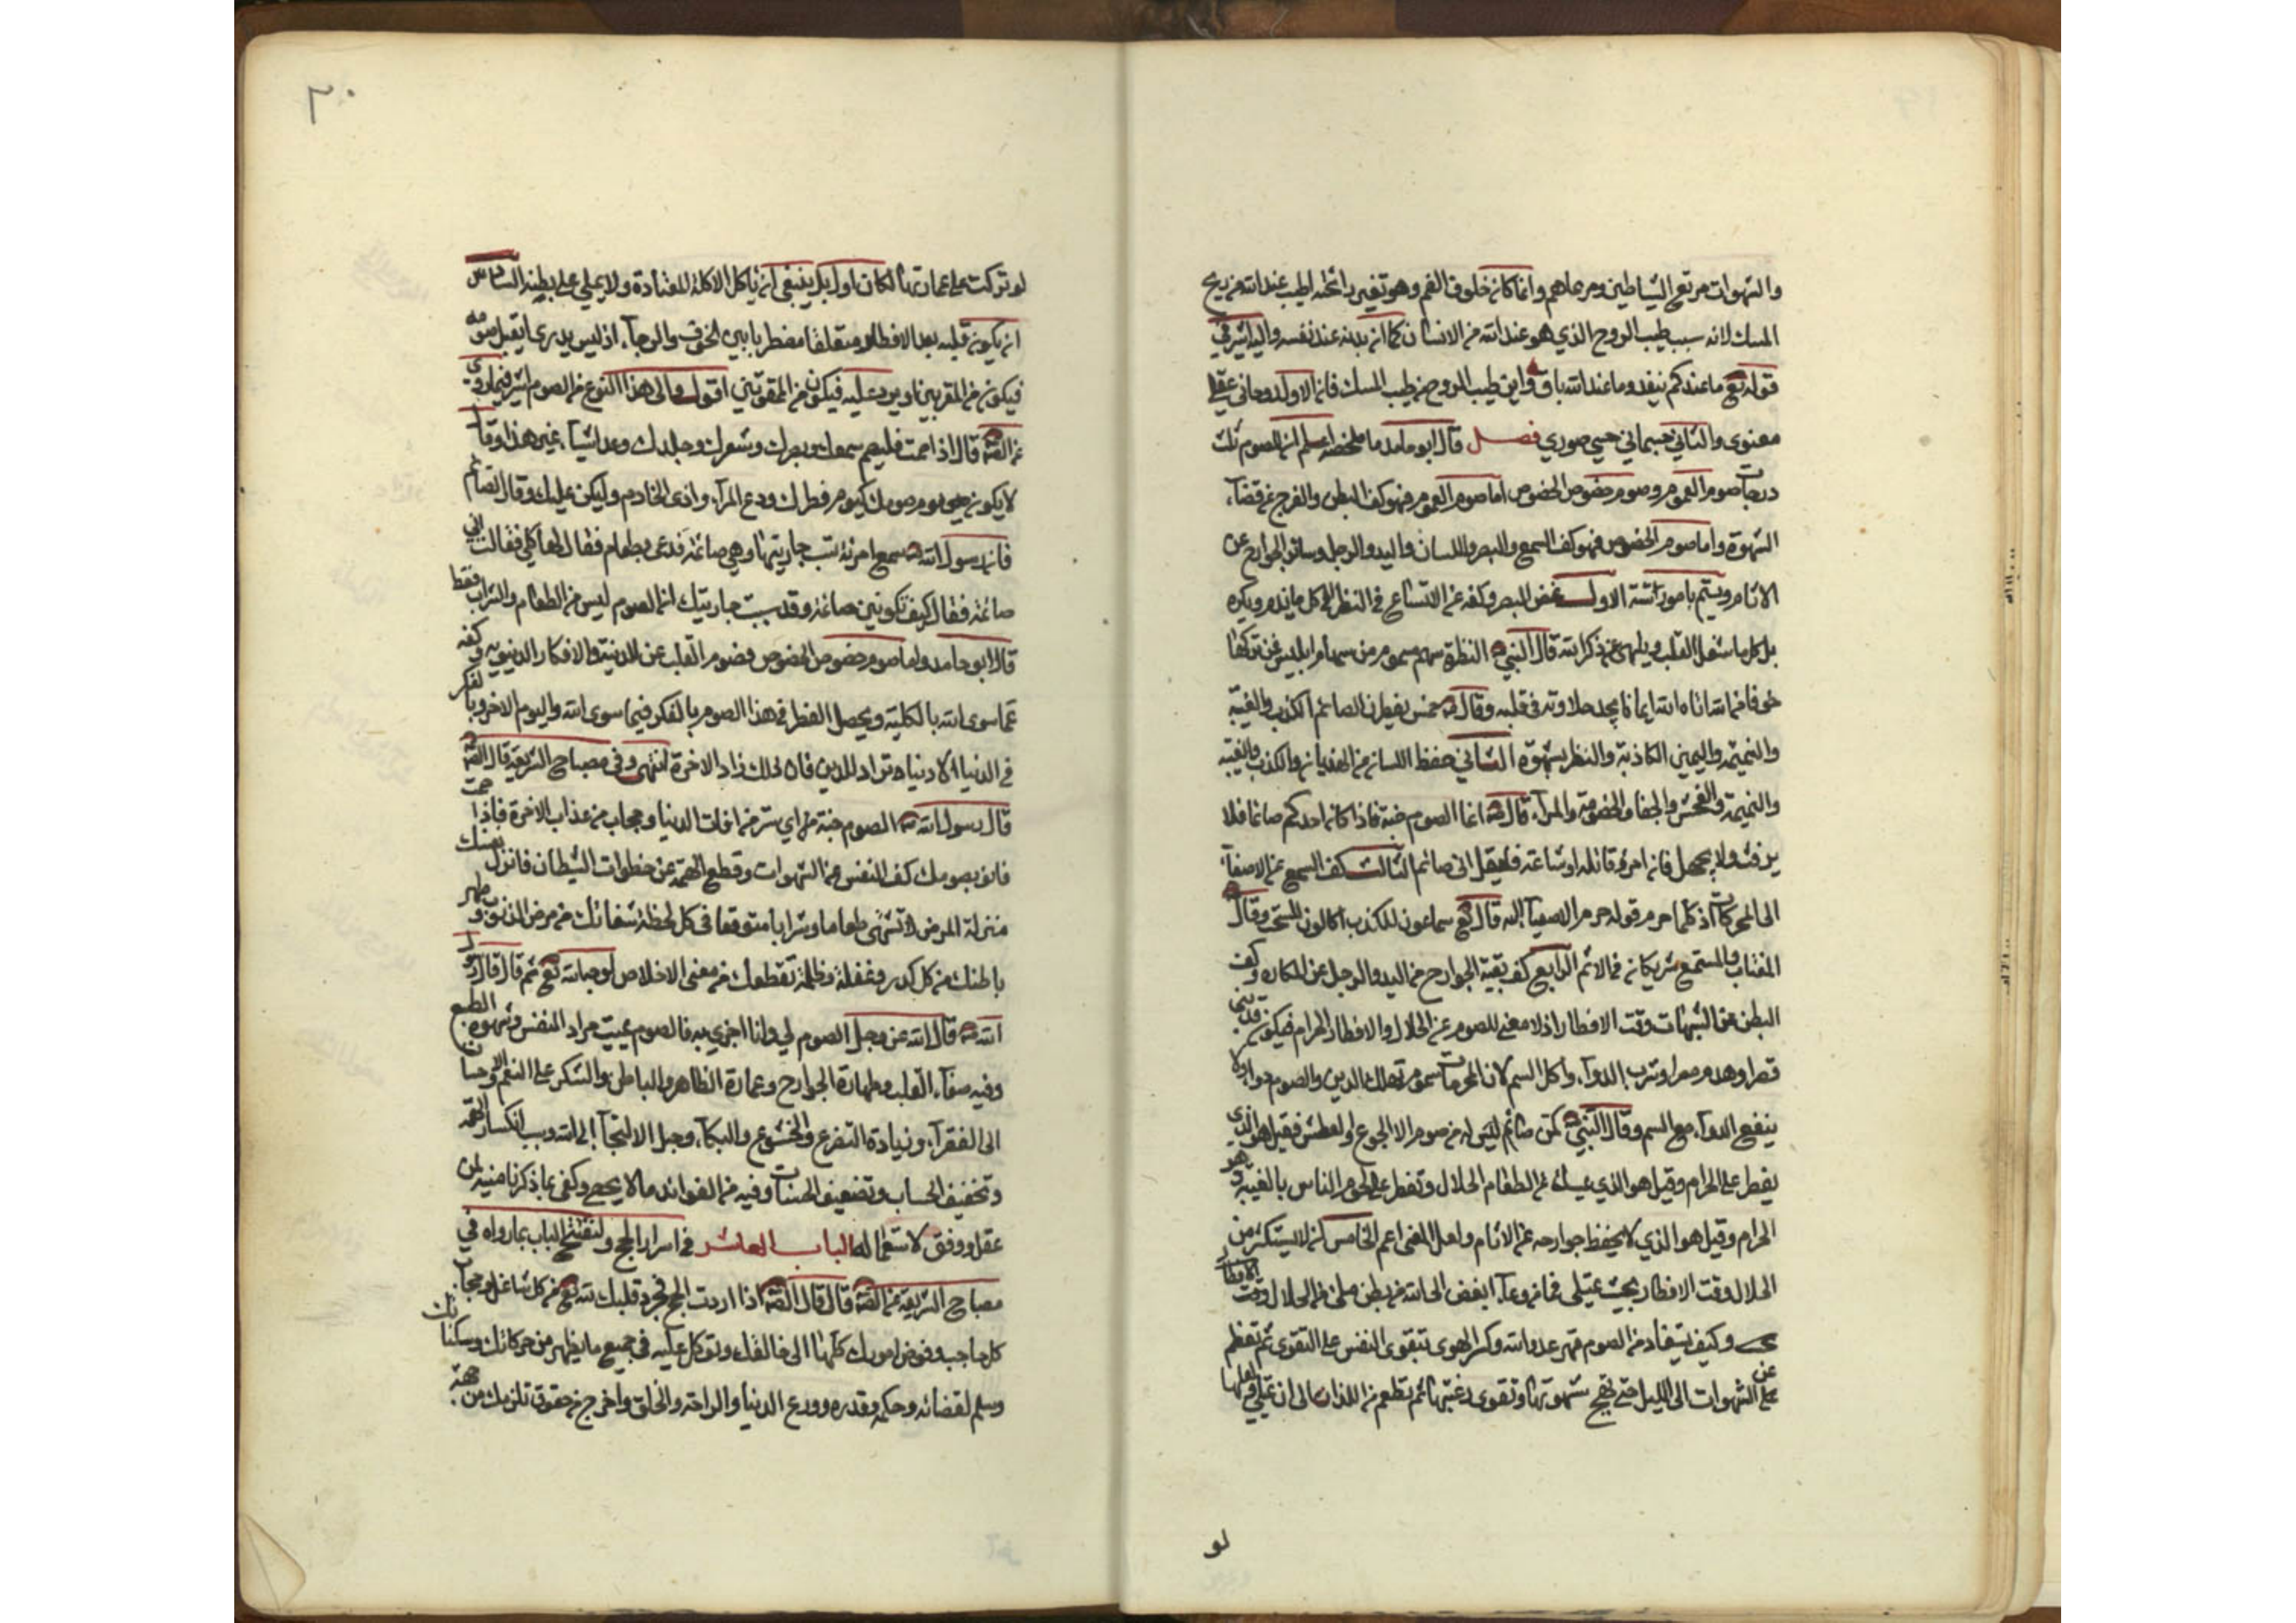 والشهوات مرتع الشياطين ومرعاهم وانما كان خلوف الفم وهو تغير رائحته اطيب عند الله من ريح
المسك لانه سبب طيب الروح الذي هو عند الله من الانسان كما ان بدنه عند نفسه واليه اشير في
قوله تع ما عندكم ينفد وما عند الله باق واين طيب الروح من طيب المسك فان الاول روحاني عقلي
معنوى والثاني جسماني حسي صوري فصل قال ابو حامد ما ملخصه اعلم ان الصوم ثلث
درجات صوم العموم وصوم خصوص الخصوص اما صوم العموم فهو كف البطن والفرج عن قضآء
الشهوة واما صوم الخصوص فهو كف السمع والبصر واللسان واليد والرجل وساير الجوارح عن
الاثام ويتم بامور ستة الاول غض البصر وكفه عن الاتساع في النظر الى كل ما يذم ويكره
بل كل ما شغل القلب ويلهى عن ذكر الله قال النبي ص النظرة سهم مسموم من سهام ابليس فمن تركها
خوفا من الله اتاه الله ايمانا يجد حلاوته في قلبه وقال ص خمس يفطرن الصائم الكذب والغيبة
والنميمة واليمين الكاذبة والنظر بشهوة الثاني حفظ اللسان من الهذيان والكذب والغيبة
والنميمة والفحش والجفا والخصومة والمرآء قال ص انما الصوم جنة فاذا كان احدكم صائما فلا
يرفث ولا يجهل فان امرؤ قاتله او شاتمه فليقل انى صائم الثالث كف السمع عن الاصغآء
الى المحرمات اذ كلما حرم قوله حرم الاصغآء اليه قال تع سماعون للكذب اكالون للسحت وقال ص
المغتاب والمستمع شريكان في الاثم الرابع كف بقية الجوارح من اليد والرجل عن المكاره وكف
البطن عن الشبهات وقت الافطار اذ لا معنى للصوم عن الحلال والافطار الحرام فيكون كمن بنى
قصرا وهدم مصرا وشرب الدوآء واكل السم لان المحرمات سموم تهلك الدين والصوم دوآء ولا
ينفع الدوآء مع السم وقال النبي ص كم من صائم ليس له من صومه الا الجوع والعطش فقيل هو الذي
يفطر على الحرام وقيل هو الذي يمسك عن الطعام الحلال وتفطر على لحوم الناس بالغيبة وهو
الحرام وقيل هو الذي لا يحفظ جوارحه عن الاثام ولعل المعنى اعم الخامس ان لا يستكثر من
الحلال وقت الافطار بحيث يمتلى فما من وعآء ابغض الى الله من بطن ملئ من الحلال وقت الافطار
وكيف يستفاد من الصوم قهر عدو الله وكسر الهوى لتقوى النفس على التقوى ثم تفطم
عن الشهوات الى الليل حتى تهيج شهوتها وتقوى رغبتها ثم يطعم من اللذات الى ان تمتلي
لو
٣٠
لو تركت على عادتها لكان اولى بل ينبغى ان ياكل الاكلة المعتادة ولا يملي على بطنه السادس
ان يكون قلبه بعد الافطار متعلقا مضطربا بين الخوف والرجآء اذ ليس يدرى ايقبل صومه
فيكون من المقربين او يرد عليه فيكون من الممقوتين اقول والى هذا النوع من الصوم اشير فيما روى
عن الصه قال اذا صمت فليصم سمعك وبصرك وشعرك وجلدك وعد اشيآء غير هذا وقال
لا يكون يوم صومك كيوم فطرك ودع المرآء واذى الخادم وليكن عليك وقار الصائم
فان رسول الله ص سمع امرئة تسب جاريتها وهي صائمة فدعى بطعام فقال لها كلي فقالت اني
صائمة فقال كيف تكونين صائمة وقد سببت جاريتك ان الصوم ليس من الطعام والشراب فقط
قال ابو حامد واما صوم خصوص الخصوص فصوم القلب عن الدنية والافكار الدنيوية وكفه
عما سوى الله بالكلية ويحصل الفطر في هذا الصوم بالفكر فيما سوى الله واليوم الاخر وبالفكر
في الدنيا الا دنيا تراد للدين فان ذلك زاد الاخرة انتهى وفي مصباح الشريعة قال الصه
قال رسول الله ص الصوم جنة من اي ستر من افات الدنيا وحجاب من عذاب الاخرة فاذا صمت
فانو بصومك كف النفس عن الشهوات وقطع الهمة عن خطوات الشيطان فانزل نفسك
منزلة المرض لا تشتهى طعاما وشرابا متوقعا في كل لحظة شفائك من مرض الذنوب وطهر
باطنك من كل كدر وغفلة وظلمة تقطعك من معنى الاخلاص لوجه الله تع ثم قال قال رسول
الله ص قال الله عز وجل الصوم لي وانا اجزي به فالصوم يميت مراد النفس وشهوة الطبع
وفيه صفآء القلب وطهارة الجوارح وعمارة الظاهر والباطن والشكر على النعم والاحسان
الى الفقرآء وزيادة التضرع والخشوع والبكآء وحبل الالتجآء الى الله وسبب انكسار الهمة
وتخفيف الحساب وتضعيف الحسنات وفيه من الفوائد ما لا يحصى وكفى بما ذكرنا منه لمن
عقل ووفق لاستعماله الباب العاشر في اسرار الحج ولنفتتح الباب بما رواه في
مصباح الشريعة عن الصه قال قال الصه اذا اردت الحج فجرد قلبك لله تع من كل شاغل وحجاب
كل حاجب وفوض امورك كلها الى خالقك وتوكل عليه في جميع ما يظهر من حركاتك وسكناتك
وسلم لقضائه وحكمه وقدره وودع الدنيا والراحة والخلق واخرج من حقوق تلزمك من جهة